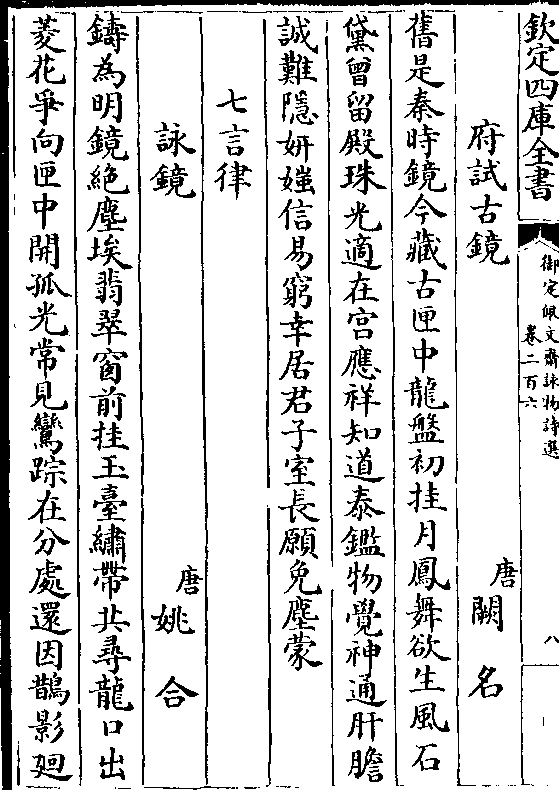 欽定四庫全書
御定佩文齋詠物詩選
卷二百六
八
府試古鏡
唐闕名
舊是秦時鏡今藏古匣中龍盤初挂月鳳舞欲生風石
黛曾留殿珠光適在宫應祥知道泰鑑物覺神通肝膽
誠難隱妍媸信易窮幸居君子室長願免塵蒙
七言律
詠鏡
唐姚合
鑄為明鏡絶塵埃翡翠窗前挂玉臺繡帶共尋龍口出
菱花爭向匣中開孤光常見鸞踪在分處還因鵲影廻